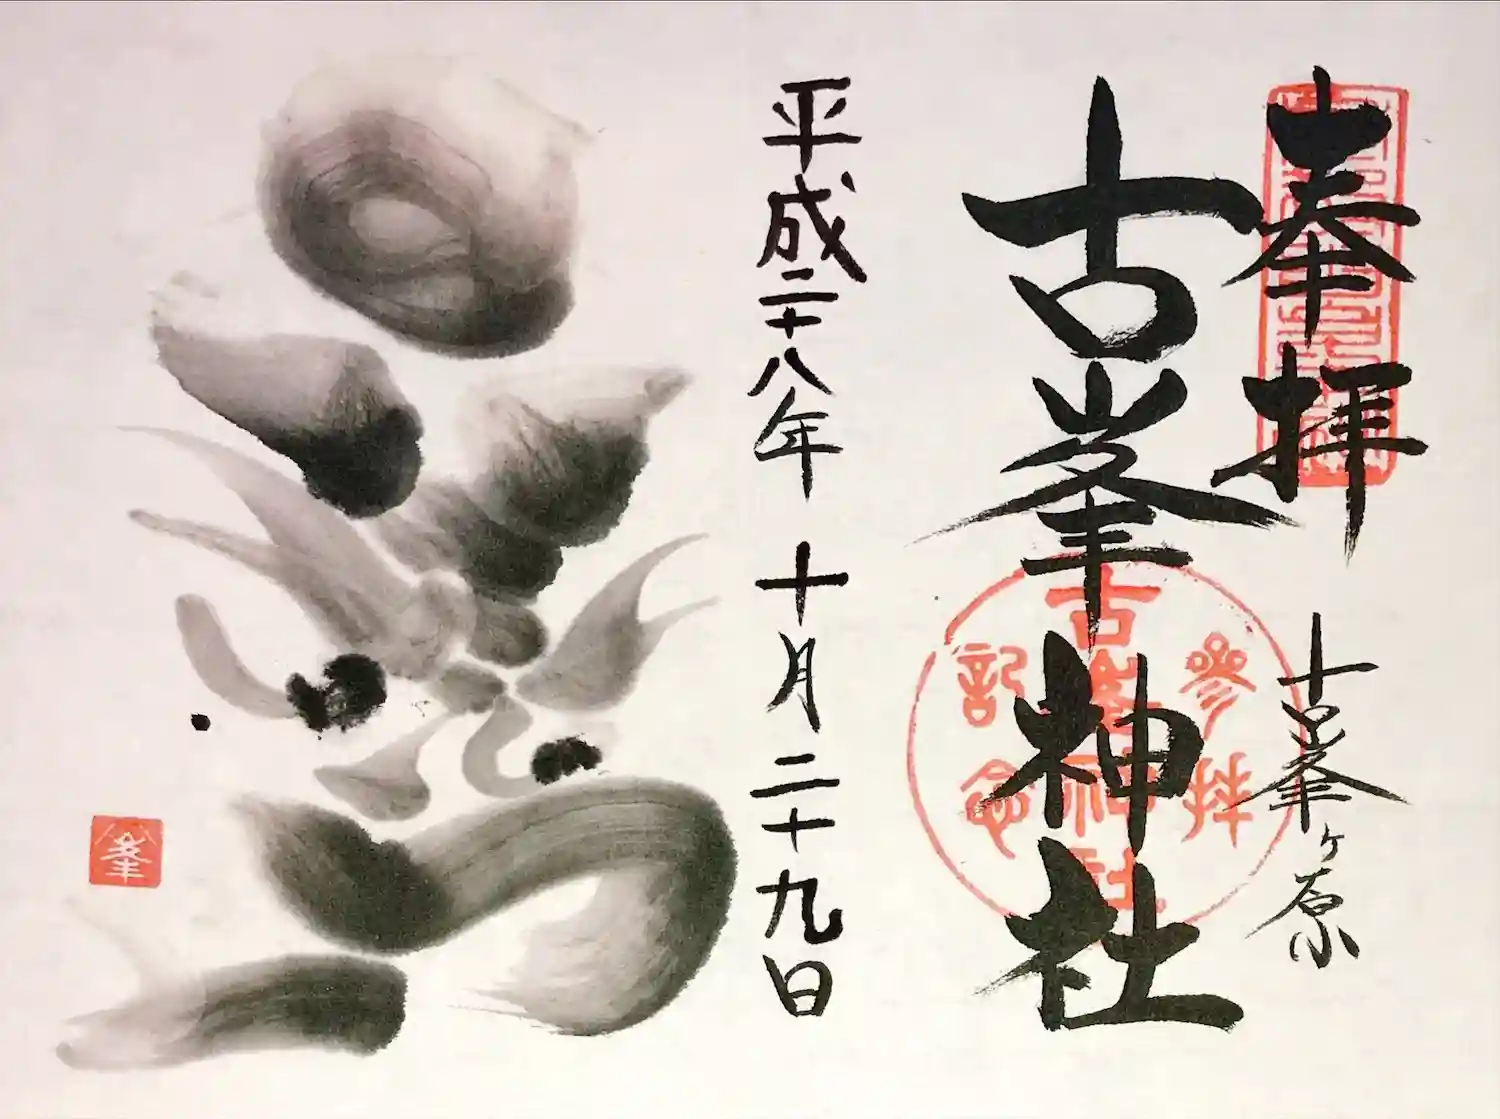 奉拝
古峯ヶ原
古峯神社
古峯神社
参拝
記念
平成二十八年 十月二十九日
峯